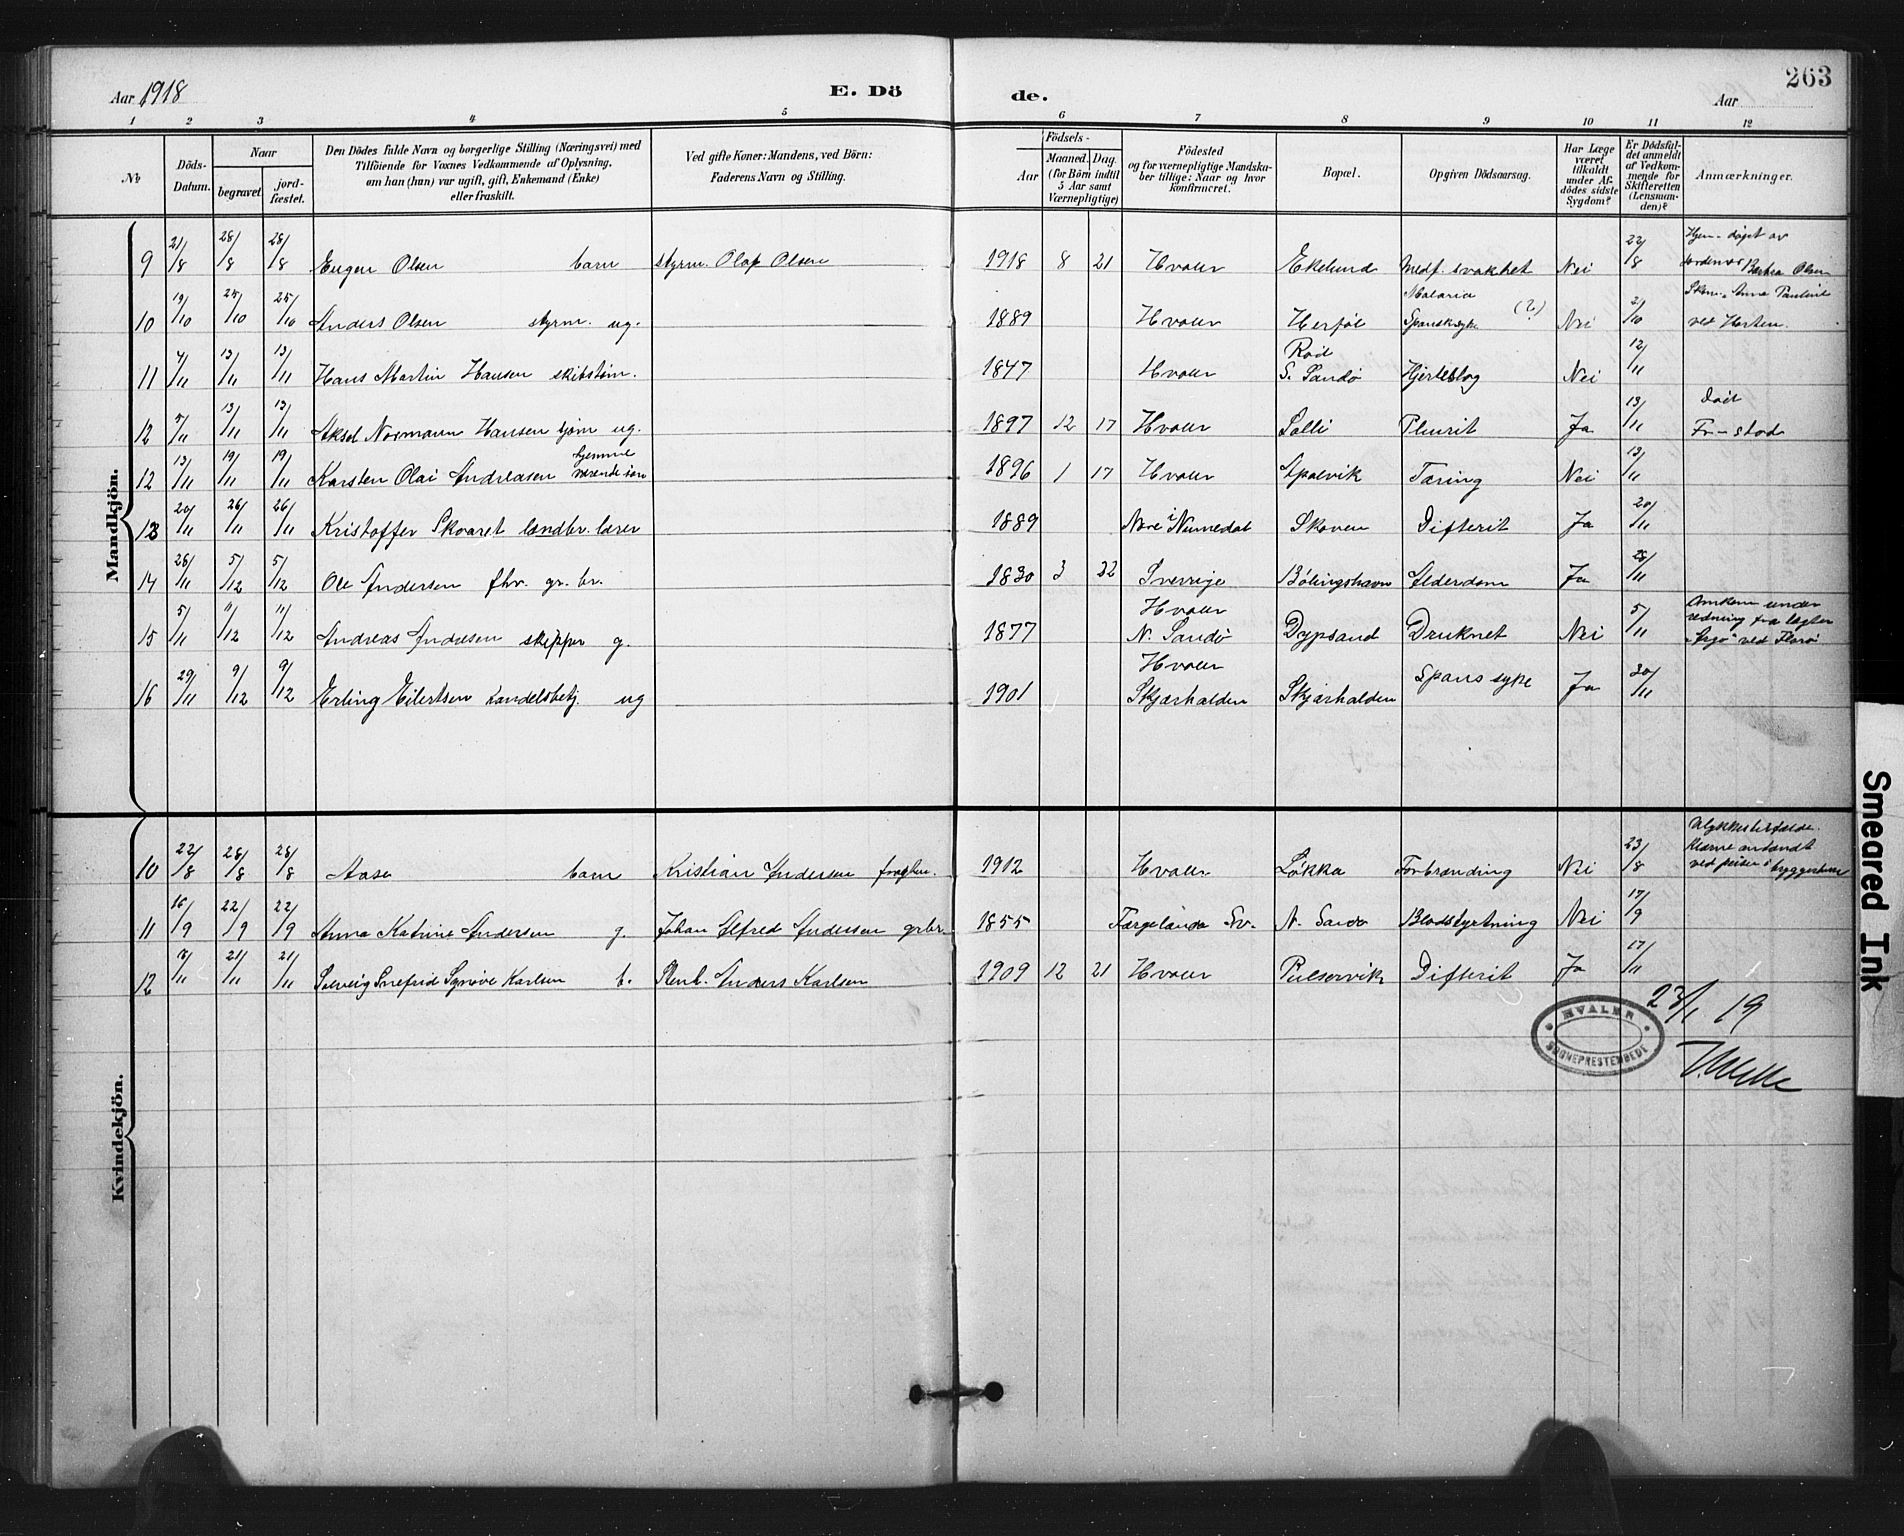 Aar 1918
E. Dö de.
Aar
263
1 2 3 4 5 6 7 8 9 10 11 12
№
Döds-Datum.
Naar
begravet.
jord-fæstet.
Den Dödes fulde Navn og borgerlige Stilling (Næringsvei) med
Tilföiende for Voxnes Vedkommende af Oplysning,
om han (hun) var ugift, gift, Enkemand (Enke)
eller fraskilt.
Ved gifte Koner: Mandens, ved Börn:
Faderens Navn og Stilling.
Födsels-
Aar
Maaned. Dag.
(for Börn indtil
5 Aar samt
Værnepligtige)
Födested
og for værnepligtige Mandska-
ber tillige: Naar og hvor
konfirmeret.
Bopæl.
Opgiven Dödsaarsag.
Har Læge
været
tilkaldt
under Af-
dödes sidste
Sygdom?
Er Dödsfal-
det anmeldt
af Vedkom-
mende for
Skifteretten
(Lensman-
den)?
Anmærkninger.
Mandkjön.
9 21/8 28/8 28/8 Eugen Olsen barn styrm. Olaf Olsen 1918 8 21 Hvaler Ekelund Medf. svakhet Nei 22/8 Hjem-døpt av jordemor Olsen
10 19/10 25/10 25/10 Anders Olsen styrm. ug. 1889 Hvaler Herføl Malaria Spansksyke (?) Nei 21/10 Anna Pauline ved Horten.
11 4/11 13/11 13/11 Hans Martin Hansen skibstøm. 1847 Hvaler Rød S. Sandø Hjerteslag Nei 12/11
12 5/11 13/11 13/11 Aksel Normann Hansen sjøm ug. 1897 12 17 Hvaler Solli Pleurit Ja 13/11 død Fr-stad
12 13/11 19/11 19/11 Karsten Olai Andreasen hjemme værende søn 1896 1 17 Hvaler Spalvik Tæring Nei 13/11
13 20/11 26/11 26/11 Kristoffer Skvaret landbr. lærer 1889 Nore i Numedal Skoven Difterit Ja 20/11
14 28/11 5/12 5/12 Ole Andersen fhv. gr. br. 1830 3 22 Sverrige Bølingshavn Alderdom Ja 28/11
15 5/11 11/12 11/12 Andreas Andresen skipper g. 1877 Hvaler N. Sandø Dypsund Druknet Nei 5/11 Omkom under redning fra lægter "Argo" ved Florø
16 29/11 9/12 9/12 Erling Eilertsen handelsbetj. ug 1901 Hvaler Skjærhalden Skjærhalden Spans syke Ja 30/11
Kvindekjön.
10 22/8 28/8 28/8 Aase barn Kristian Andersen 1912 Hvaler Løkka Forbrænding Nei 23/8 Ulykkestilfælde. Klærne antændt ved peisen i bryggerhuset
11 16/9 22/9 22/9 Anna Katrine Andersen g. Johan Alfred Andersen grbr. 1855 Færgelanda Sv. N. Sandø Blodstyrtning Nei 17/9
12 21/11 21/11 Solveig Snefrid Synøve Karlsen b. Stenh. Anders Karlsen 1909 12 21 Hvaler Pulservik Difterit Ja 17/11
23/1 19
HVALER
SOGNEPRESTEMBEDE
Smeared Ink